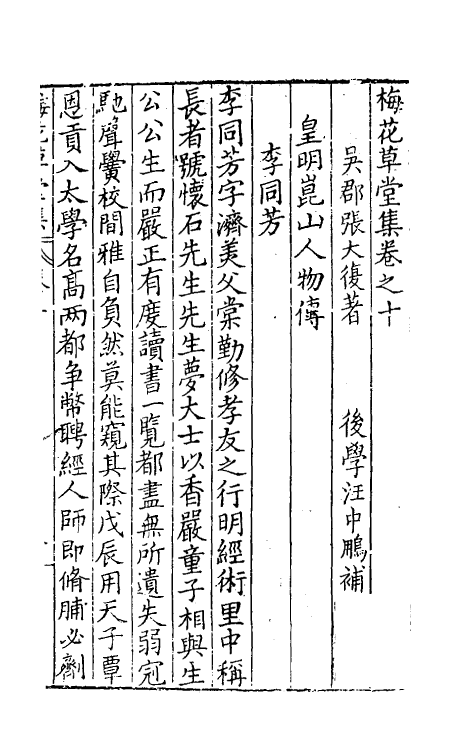 梅花草堂集卷之十
吳郡張大復著　後學汪中鵬補
皇明崑山人物傳
李同芳
李同芳字濟美父棠勤修孝友之行明經術里中稱
長者號懷石先生先生夢大士以香嚴童子相與生
公公生而嚴正有度讀書一覽都盡無所遺失弱冠
馳聲黌校間雅自負然莫能窺其際戊辰用天子覃
恩貢入太學名高两都争幣聘經人師即脩脯必劑